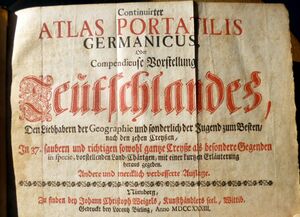 Continuirter
ATLAS PORTATILIS
GERMANICUS,
Oder
Compendieuse Vorstellung
Teutschlandes,
Den Liebhabern der Geographie und sonderlich der Jugend zum Besten,
nach den zehen Creyßen,
In 37. saubern und richtigen sowohl gantze Creyße als besondere Gegenden
in specie, vorstellenden Land-Chärtgen, mit einer kurtzen Erläuterung
heraus gegeben.
Andere und mercklich verbesserte Auflage.
Nürnberg,
Zu finden bey Johann Christoph Weigels, Kunsthändlers seel. Wittib.
Gedruckt bey Lorenz Bieling, Anno MDCCXXXIII.